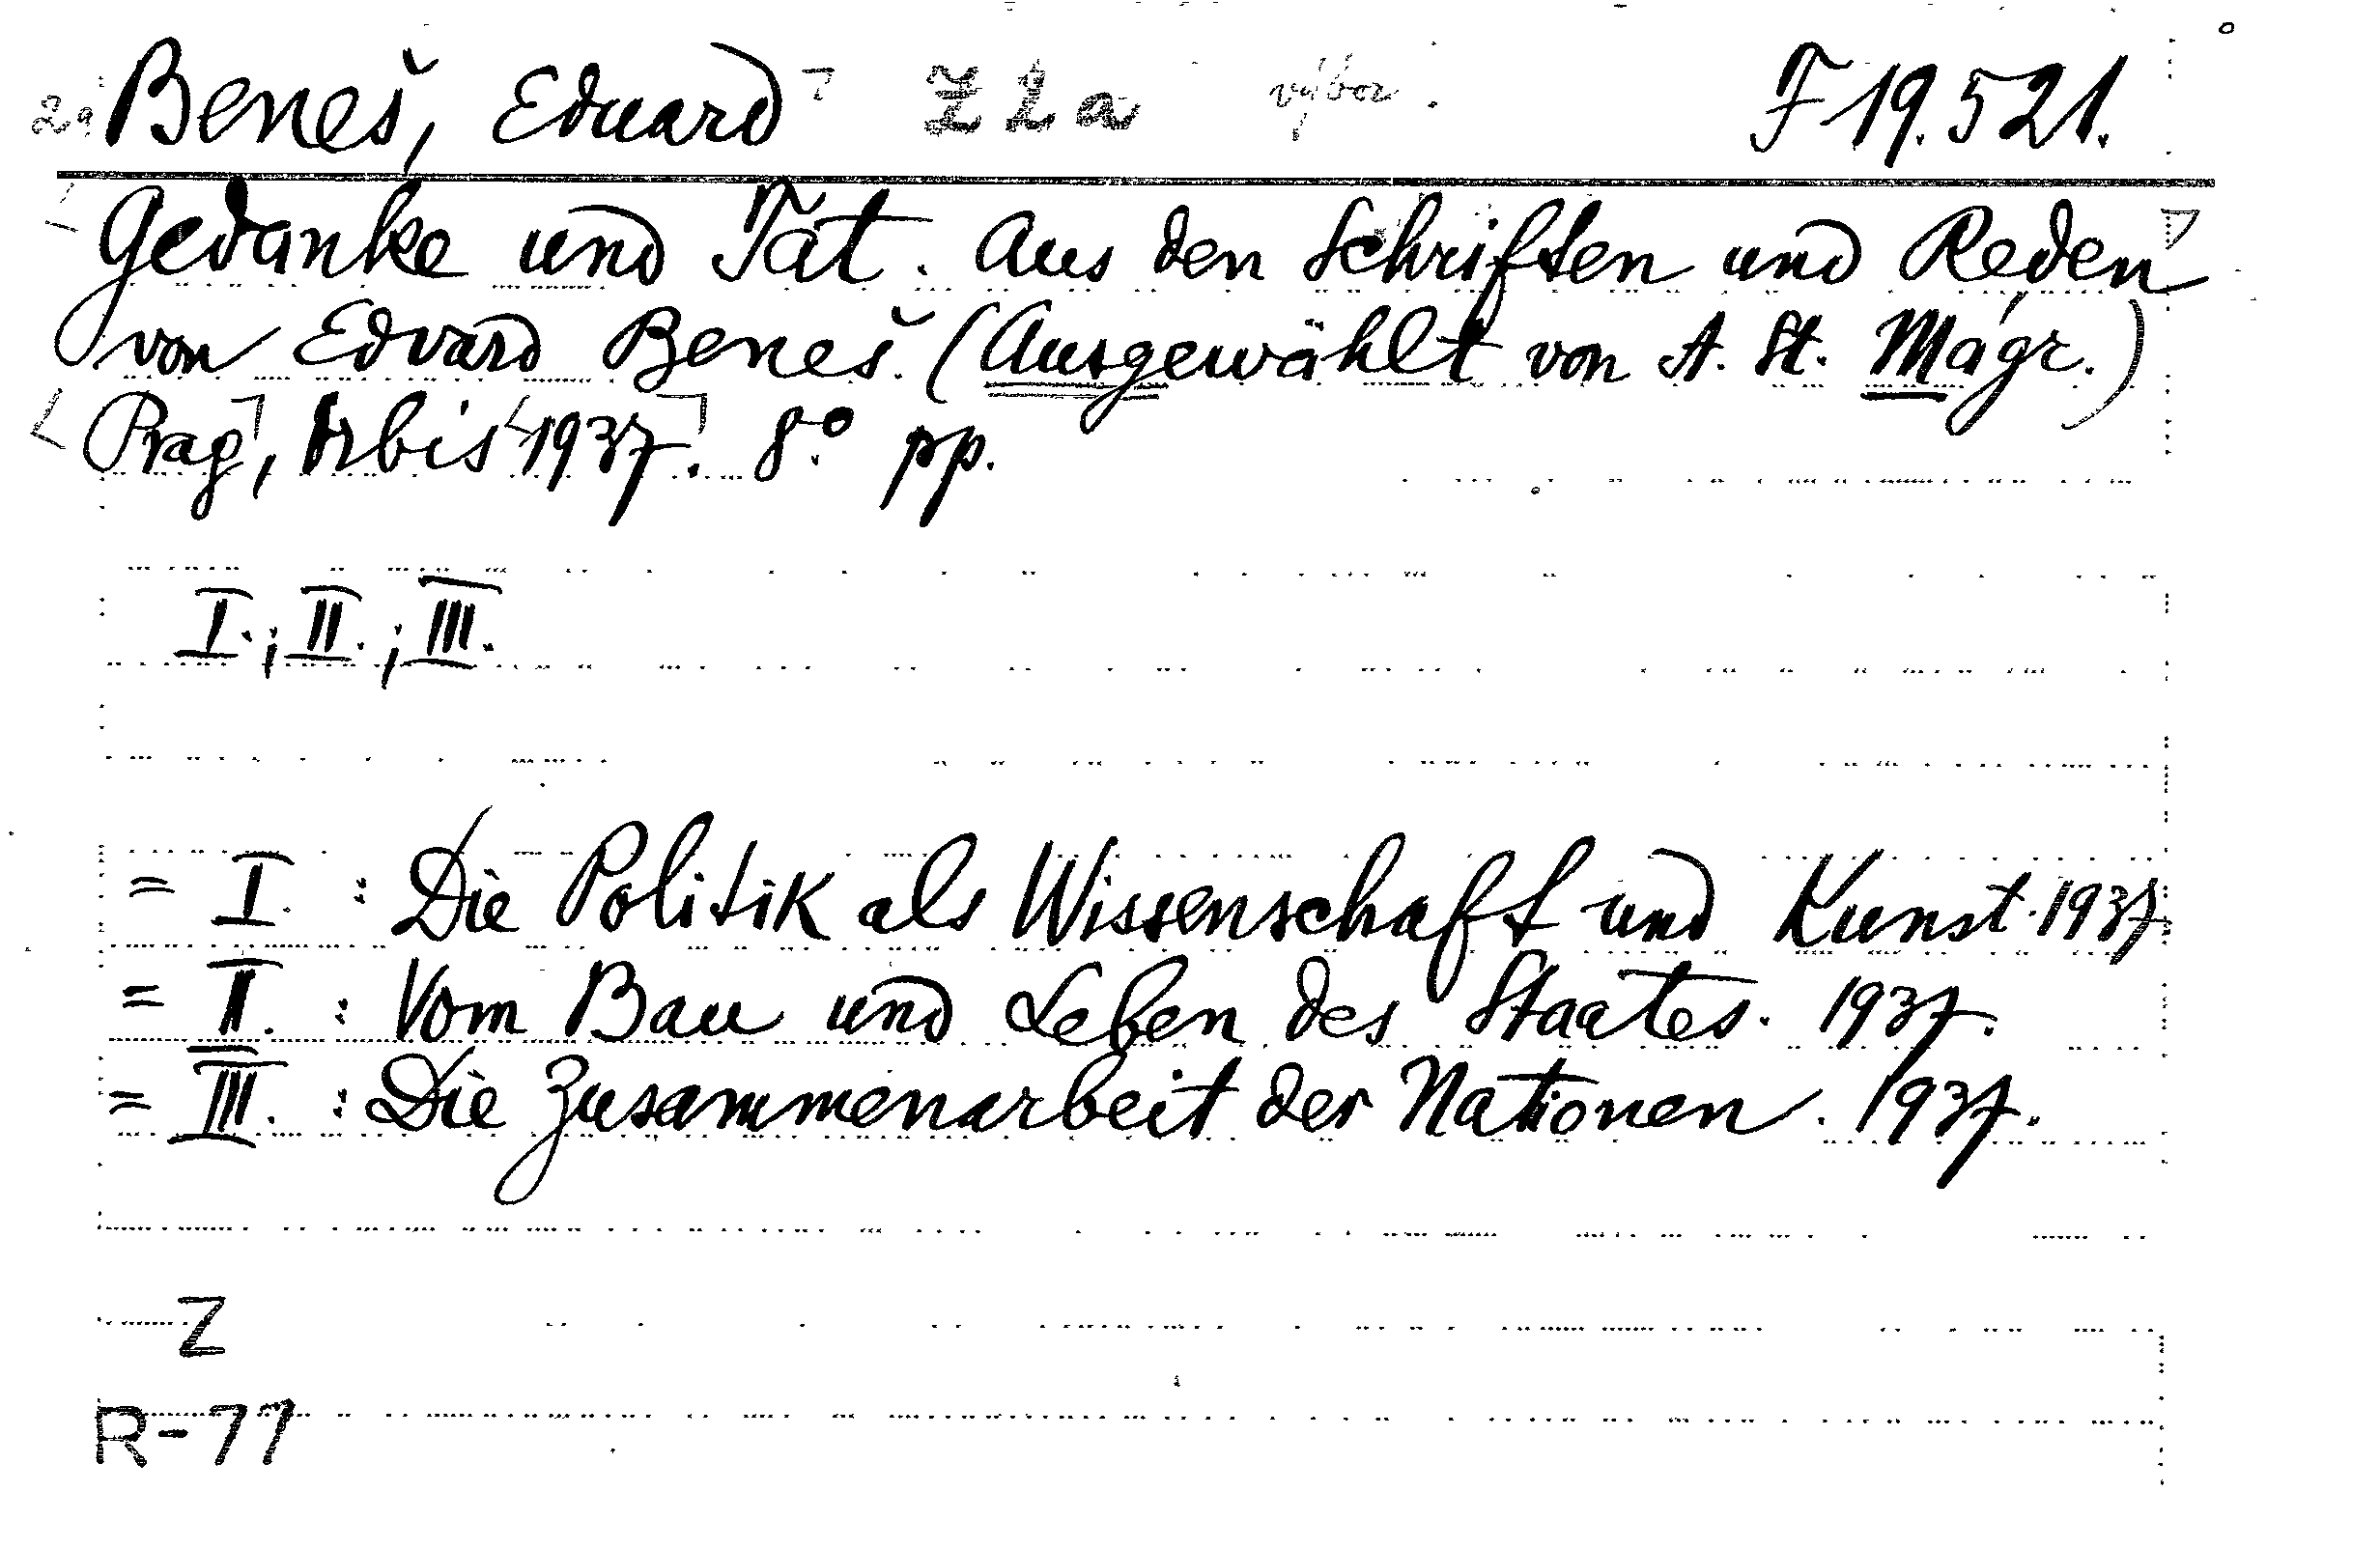 2a Beneš, Eduard Z2a výbor F 19.521.
Gedanke und Tat. Aus den Schriften und Reden
von Edvard Beneš. (Ausgewählt von A. St. Mágr.)
Prag, Orbis 1937. 8° pp.
I.; II.; III.
= I. : Die Politik als Wissenschaft und Kunst. 1937
= II. : Vom Bau und Leben des Staates. 1937.
= III. : Die Zusammenarbeit der Nationen. 1937.
Z
R-77